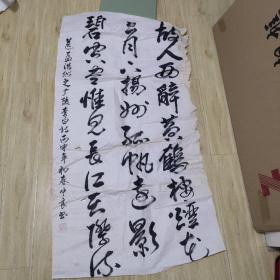 故人西辞黄鹤楼烟花
三月下扬州孤帆远影
碧空尽惟见长江天际流
送孟浩然之广陵李白诗丙申年初春